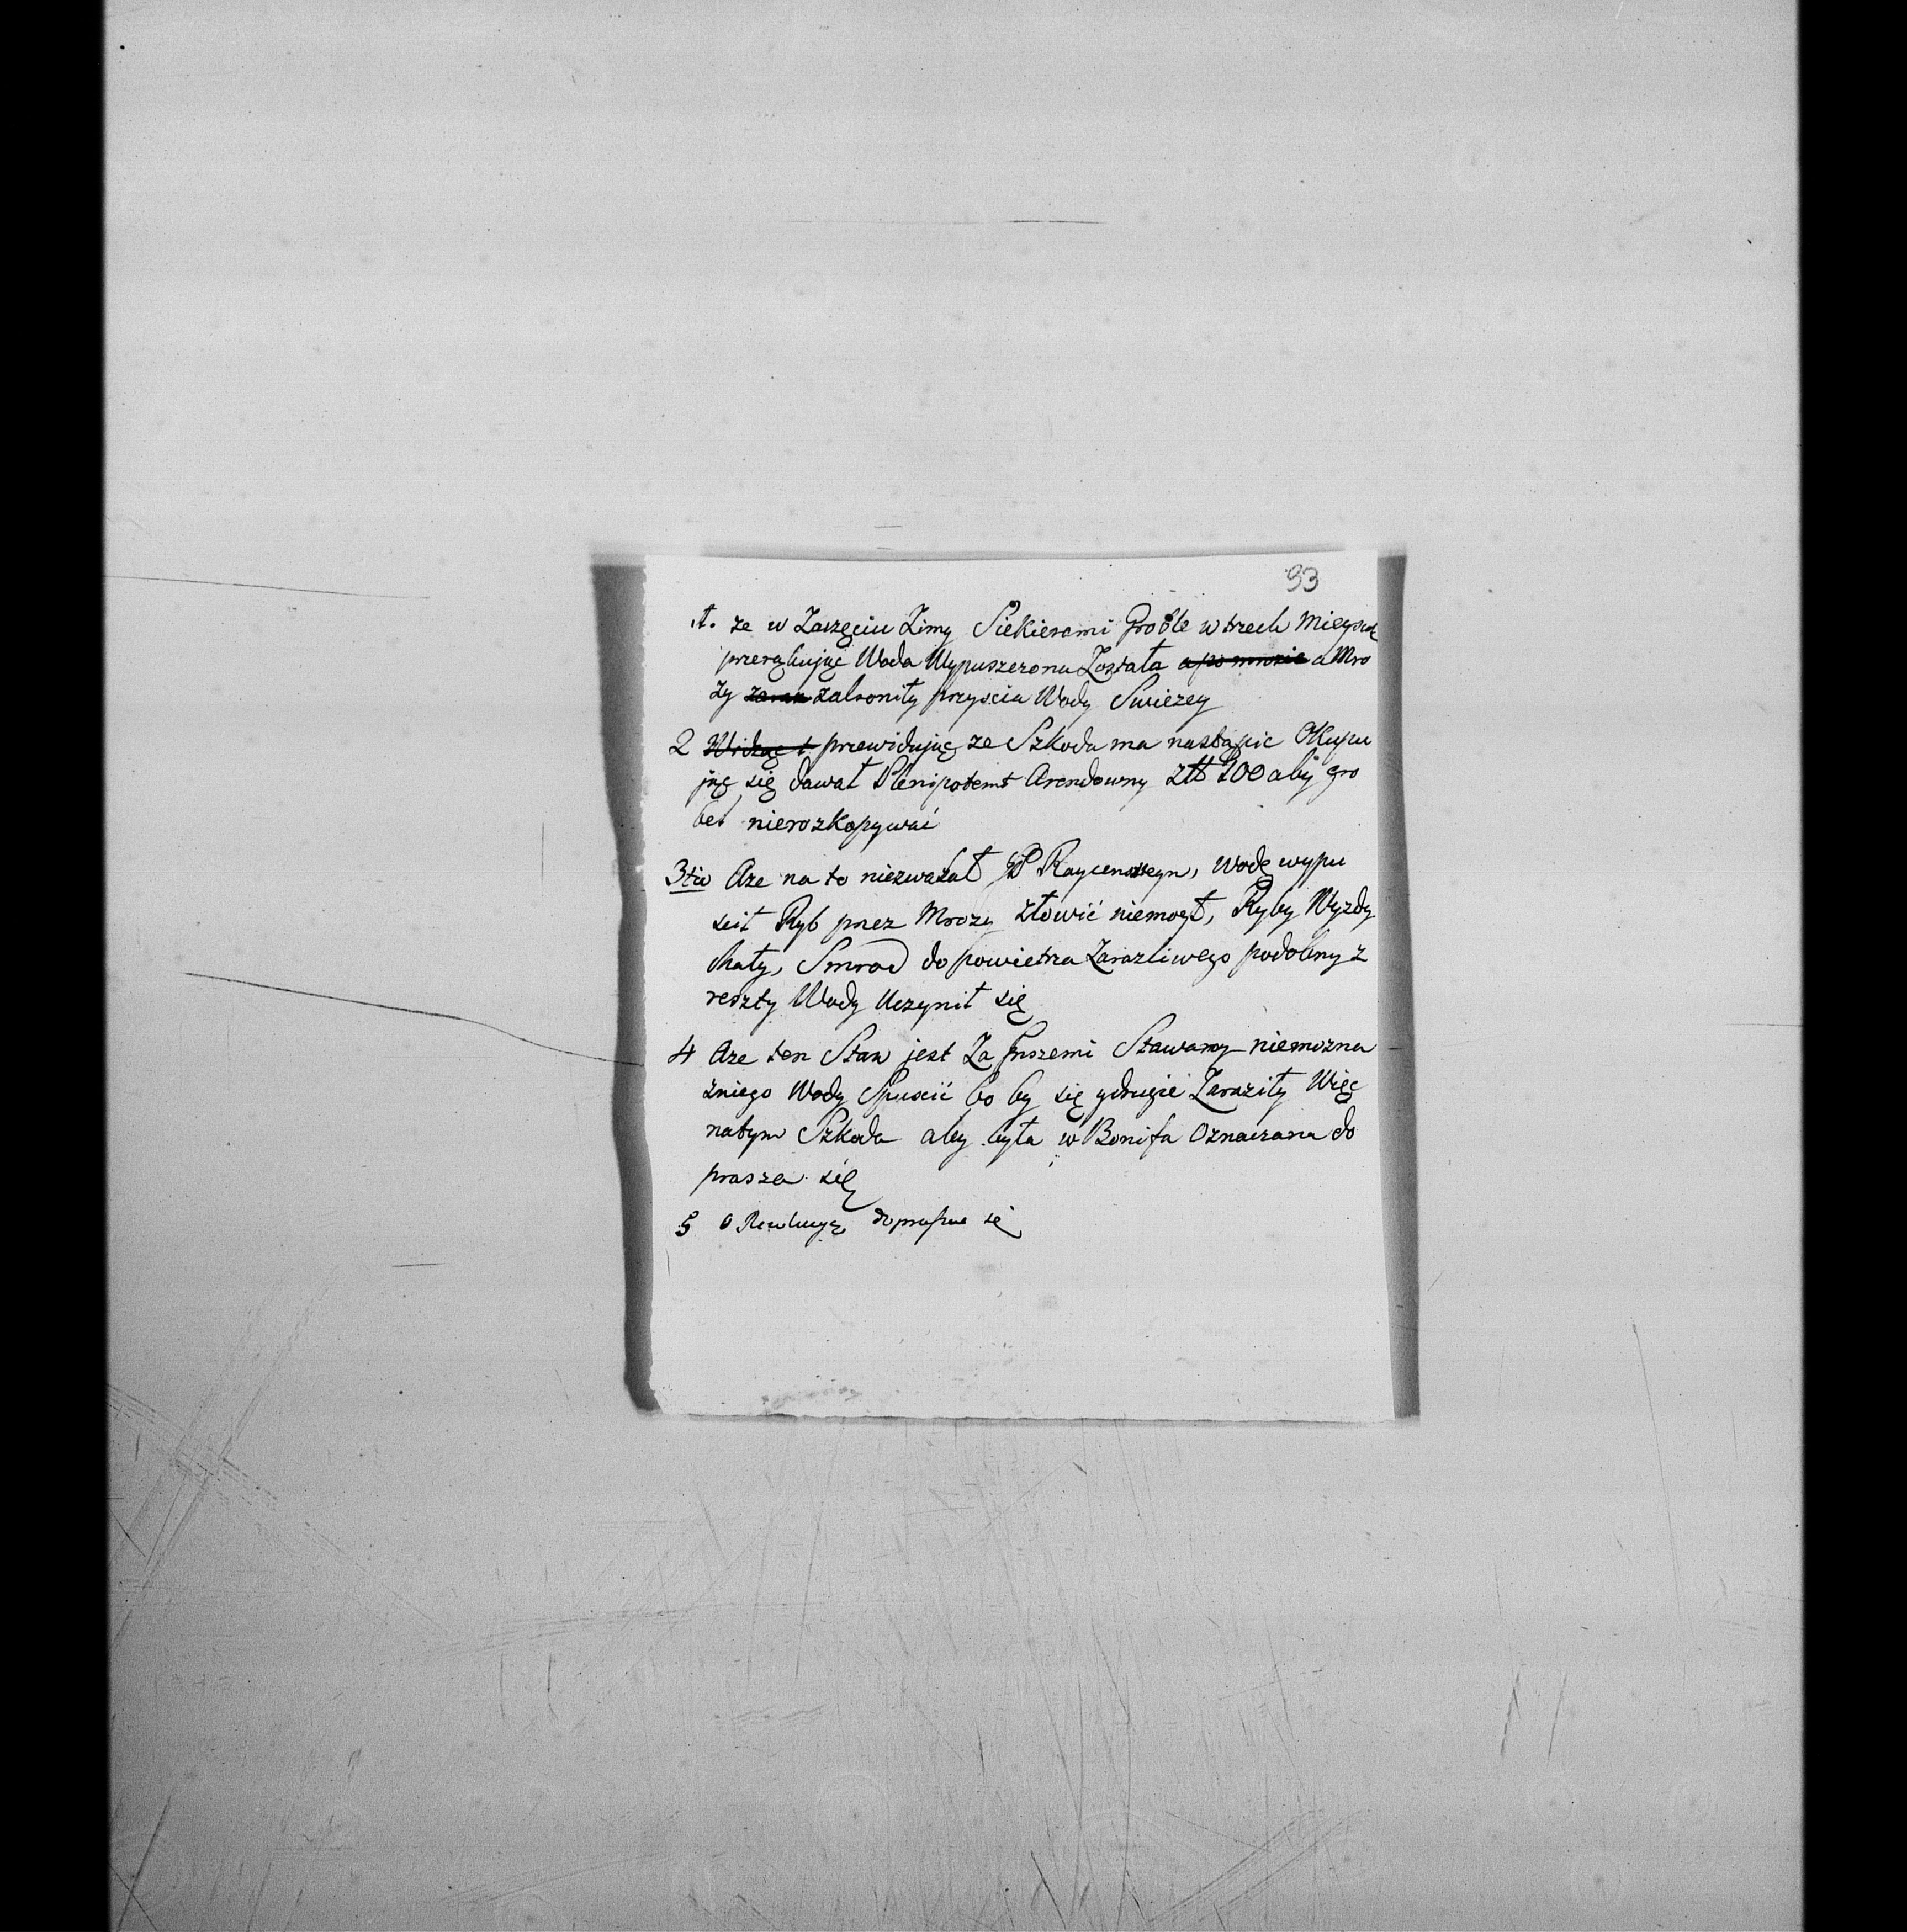 93
1. ze w Zaczęciu Zimy Siekierami Groble w trzech Mieysca
prerąbując Woda Wypuszczona Została a po mrozie a Mro
zy zaraz zabroniły przyscia Wody Swiezey
2 Widząc t prewidując, ze Szkoda ma nastąpic Okupu
jąc się dawał Plenipotent Arendowny Złł 100 aby gro
bel nierozkopywać
3tio Aze na to niezważał JP, Wodę wypu
scił Ryb prez Mrozy złowić niemogł, Ryby Wyzdy
chały, Smrod do powietrza Zarazliwego podobny z
reszty Wody Uczynił się
4 Aze ten Staw jest Za Stawamy niemozna
zniego Wody Spuscić bo by się ydrugie Zaraziły Więc
natym Szkoda aby była w Bonifa Oznaczana do
prasza się
5 O doprasza się